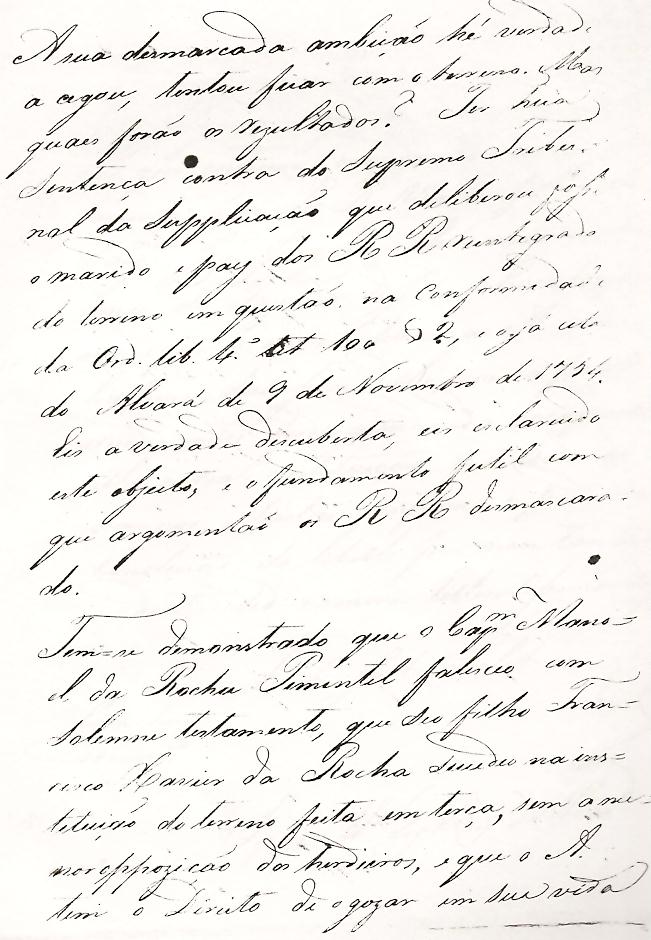 A sua desmarcada ambição hé verdade
a cegou, tentou ficar com o terreno. Mas
quaes forão os rezultados? Ter huã
Sentença contra do Supremo Tribu-
nal da Supplicação que deliberou
o marido e pay dos R R reintegrado
do terreno em questão na conformidade
da Ord. lib. 4.º tit 100 § 2,
do Alvará de 9 de Novembro de 1754.
Eis a verdade descuberta, eis esclarecido
este objecto, e o fundamento futil com
que argomentaõ os R R desmascara-
do.
Tem=se demonstrado que o Cap.m Mano=
el da Rocha Pimentel faleceo com
solemne testamento, que seo filho Fran=
cisco Xavier da Rocha sucedeo na ins=
tetuição do terreno feita em terça, sem a me=
nor oppozicão dos herdeiros, e que o A.
tem o Direito de o gozar em sua vida